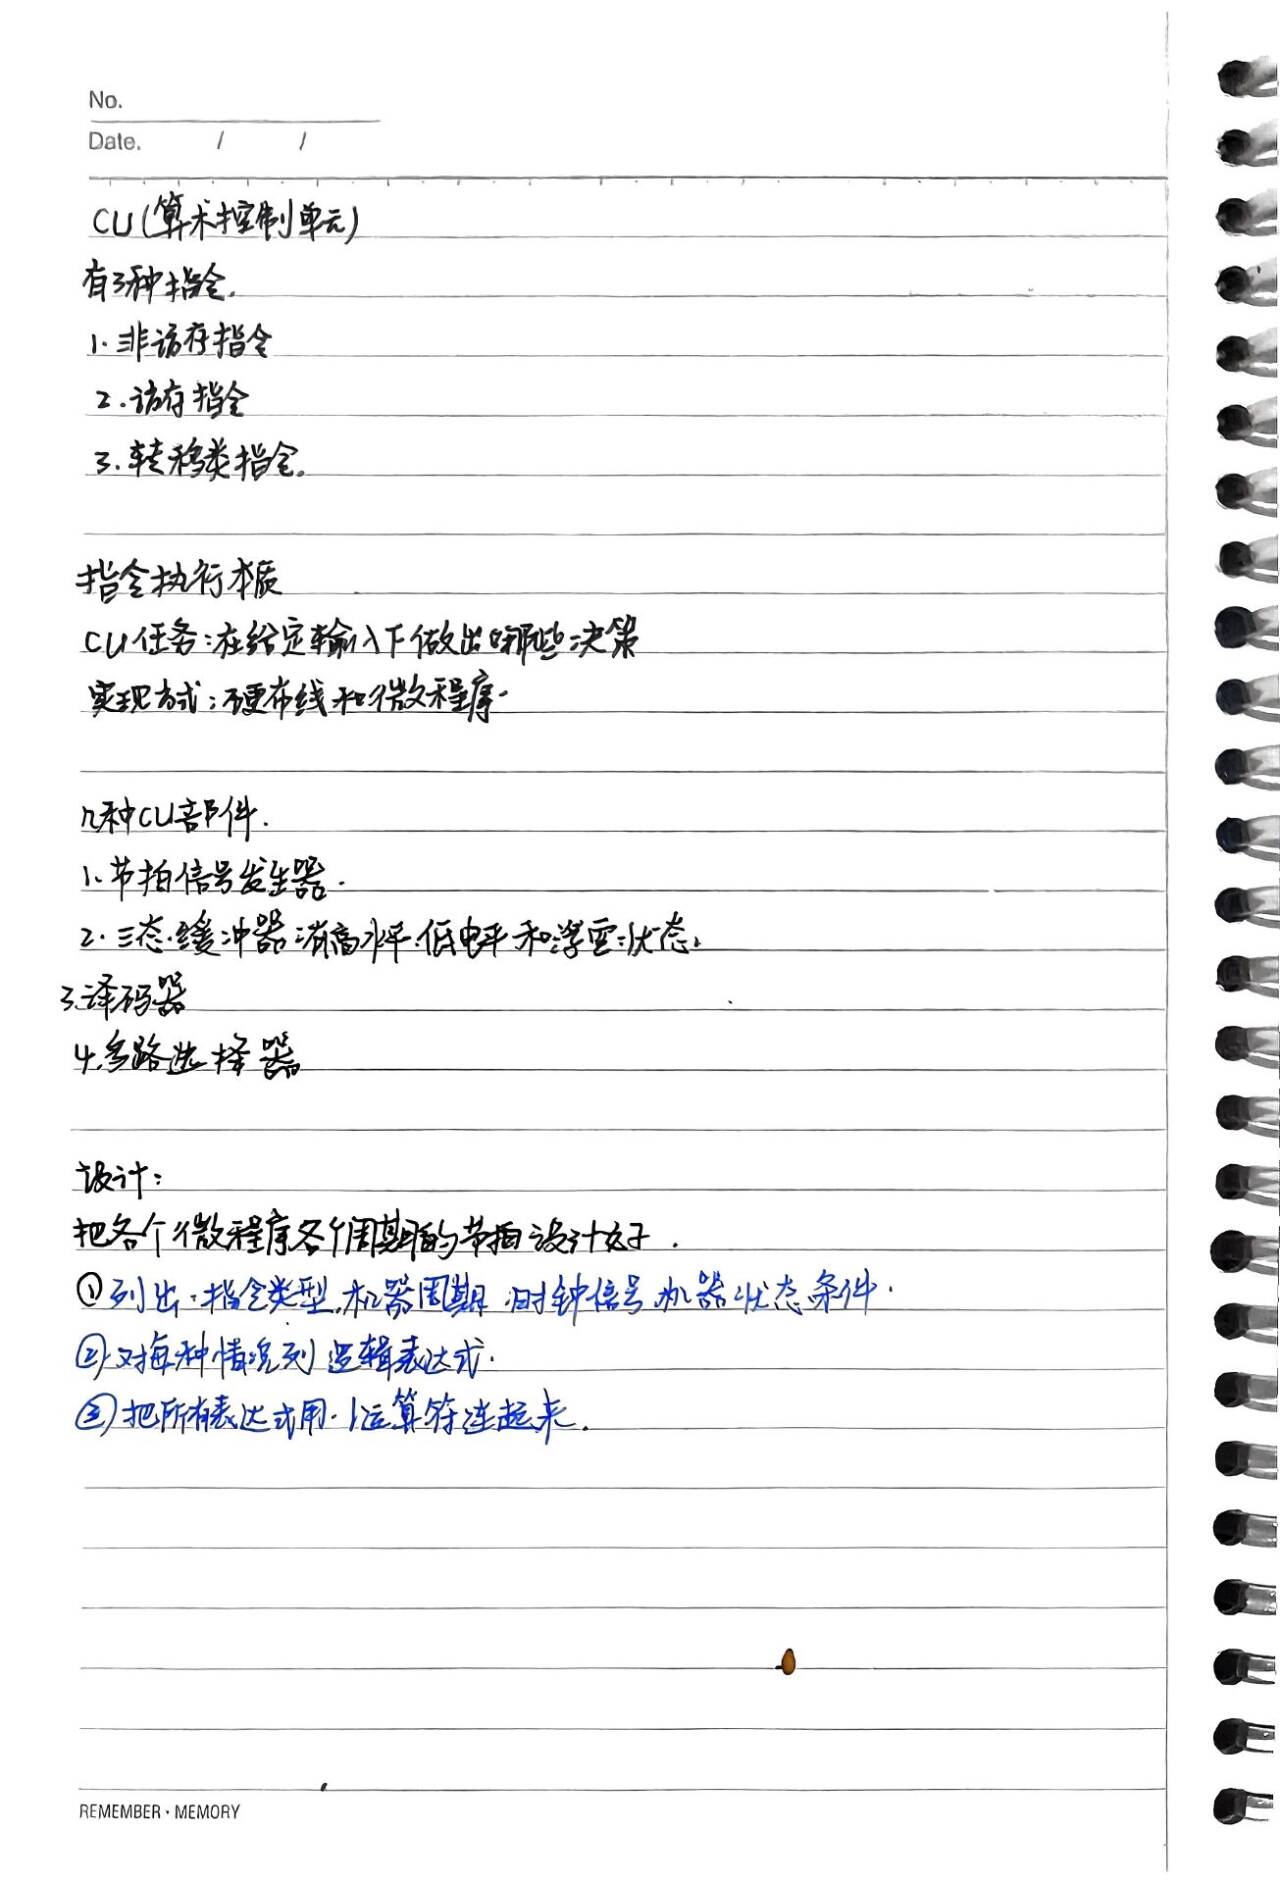 No.
Date. / /
CU(算术控制单元)
有3种指令.
1.非访存指令
2.访存指令
3.转移类指令.
指令执行本质
CU任务:在给定输入下做出哪些决策
实现方式:硬布线和微程序.
几种CU部件.
1.节拍信号发生器.
2.三态缓冲器 有高水平.低电平和浮空状态.
3.译码器
4.多路选择器
设计:
把各个微程序各个周期的节拍设计好.
①列出.指令类型.机器周期.时钟信号.机器状态条件.
②对每种情况列逻辑表达式.
③把所有表达式用.|运算符连起来.
REMEMBER·MEMORY